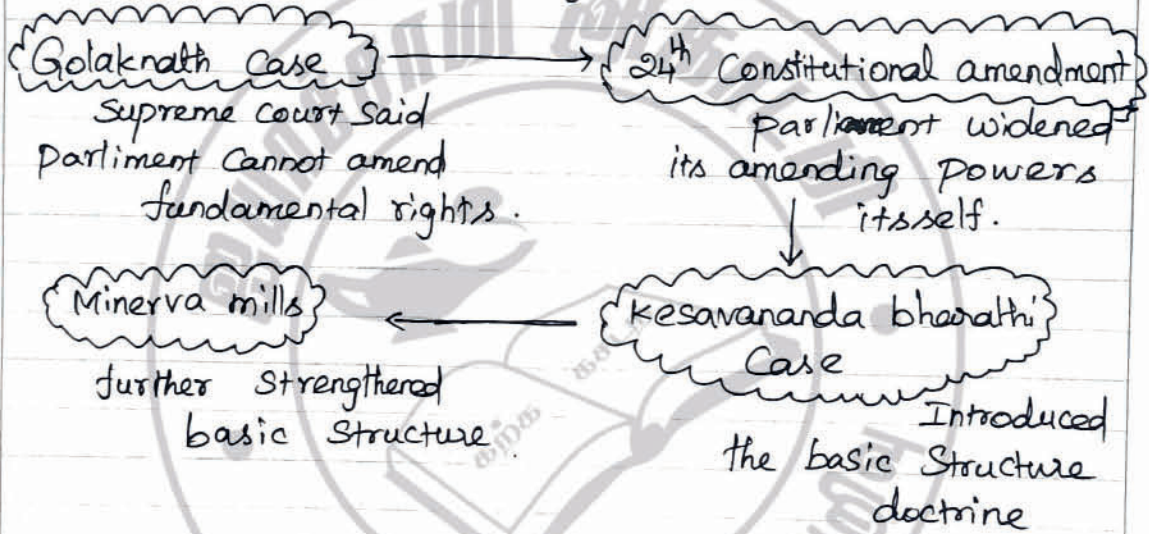 Golaknath Case
Supreme Court Said
Parliment Cannot amend
fundamental rights.
24th Constitutional amendment
parliament widened
its amending Powers
itsself.
Kesavananda bharathi
Case
Introduced
the basic Structure
doctrine
Minerva mills
further Strengthened
basic Structure.
கற்க
கசடற